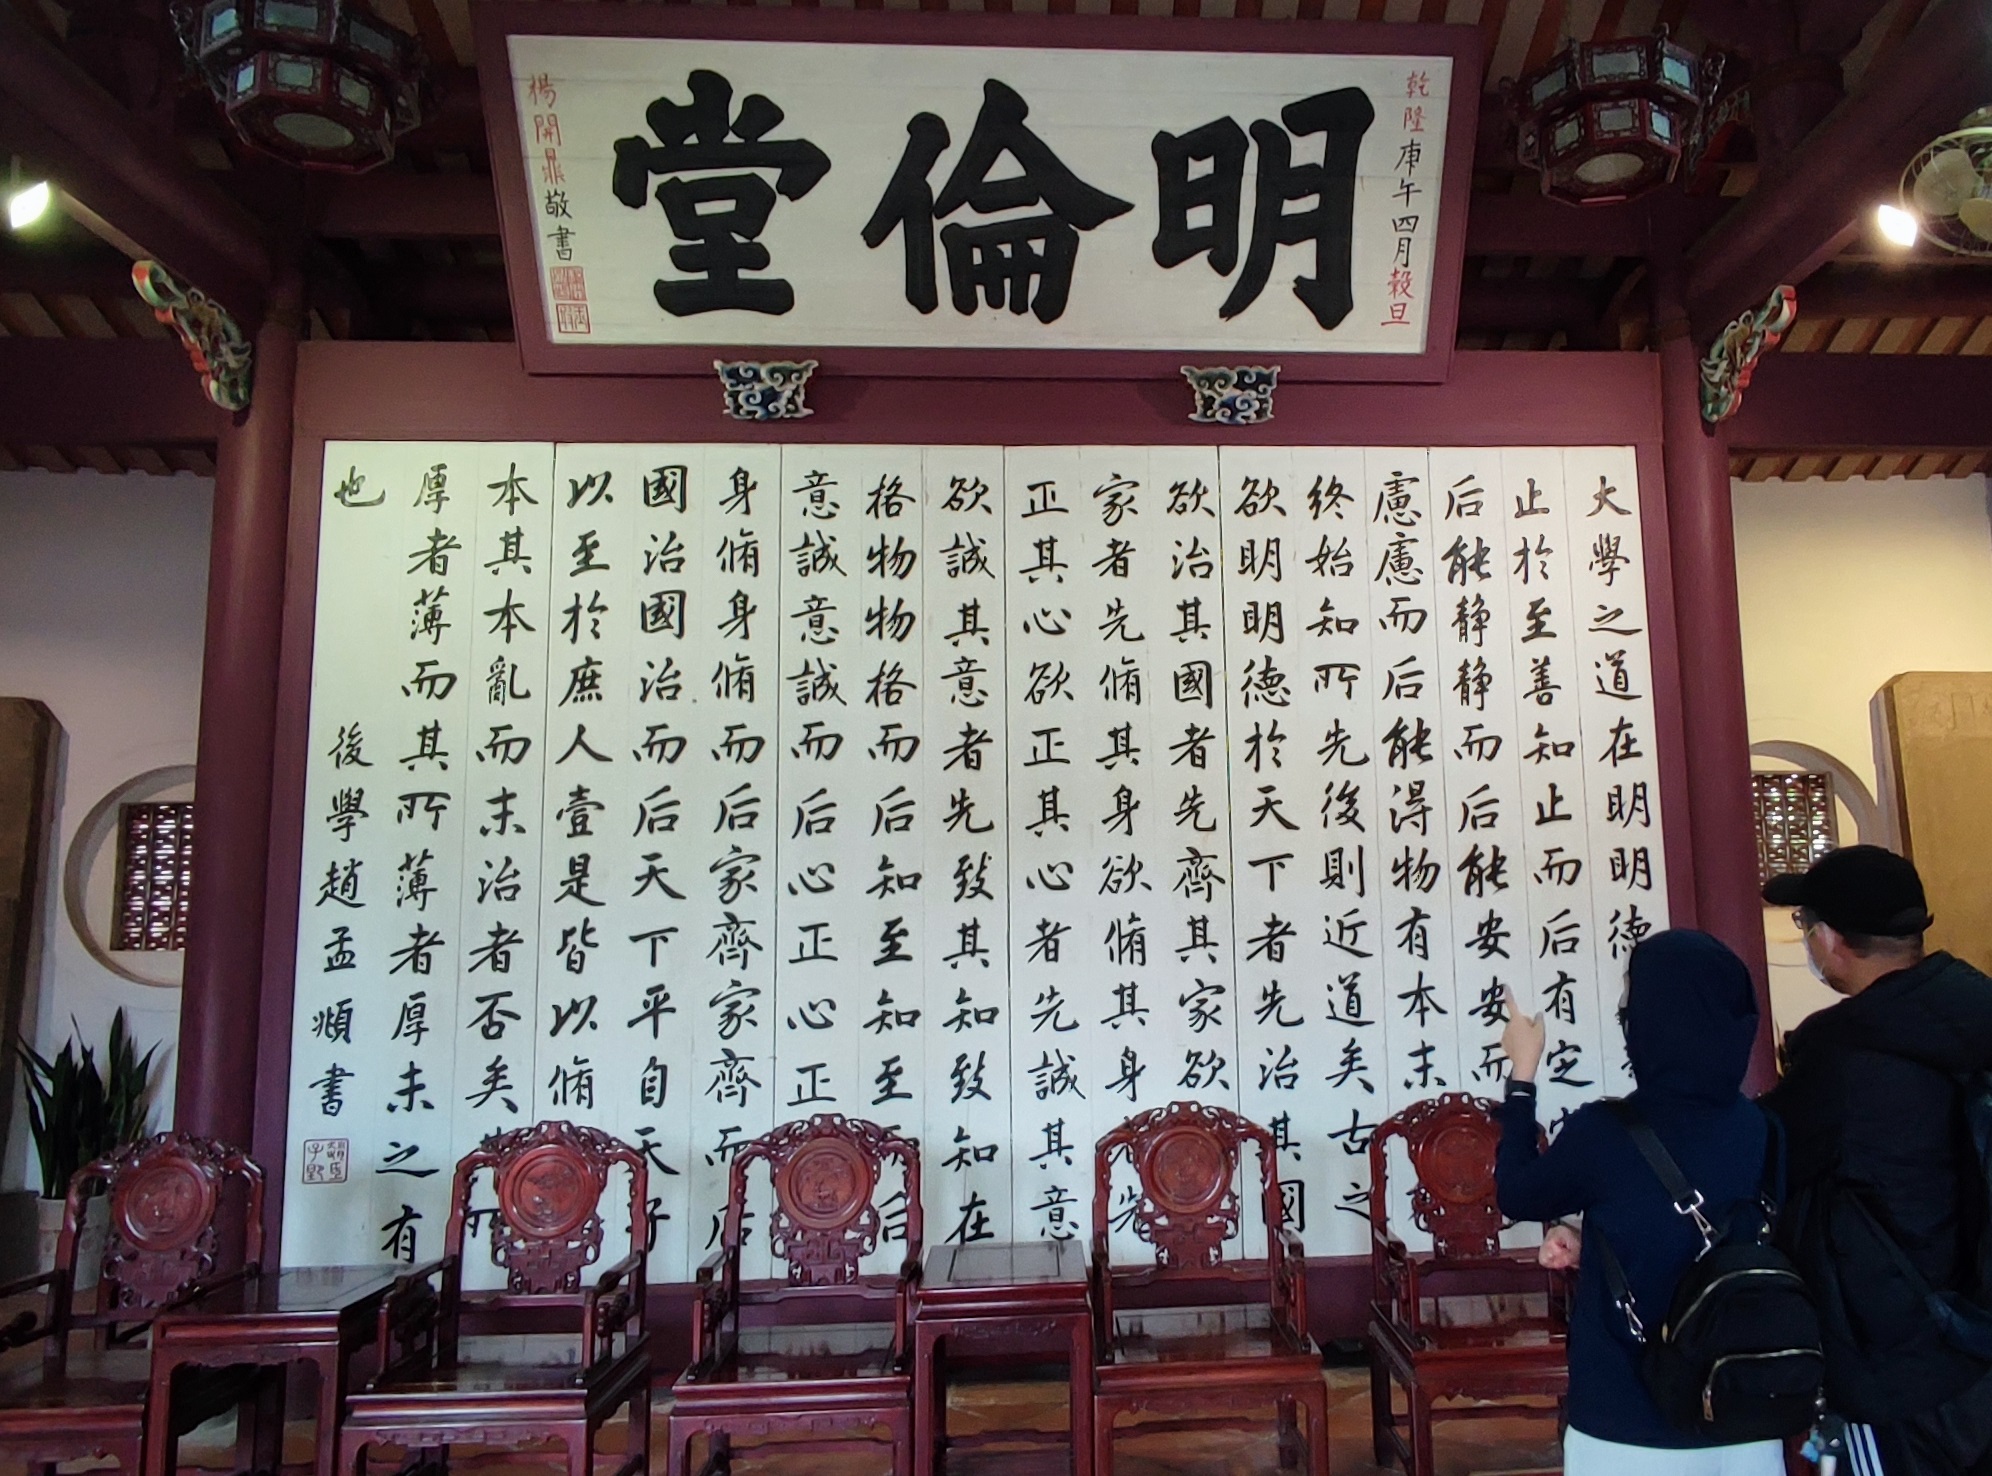 乾隆庚午四月穀旦
明倫堂
楊開鼎敬書
大學之道在明明德
止於至善知止而后有定
后能静静而后能安安而
慮慮而后能得物有本末
終始知所先後則近道矣古之
欲明明德於天下者先治其國
欲治其國者先齊其家欲
家者先脩其身欲脩其身者先
正其心欲正其心者先誠其意
欲誠其意者先致其知致知在
格物物格而后知至知至而后
意誠意誠而后心正心正
身脩身脩而后家齊家齊而后
國治國治而后天下平自天子
以至於庶人壹是皆以脩
本其本亂而末治者否矣其所
厚者薄而其所薄者厚未之有
也 後學趙孟頫書